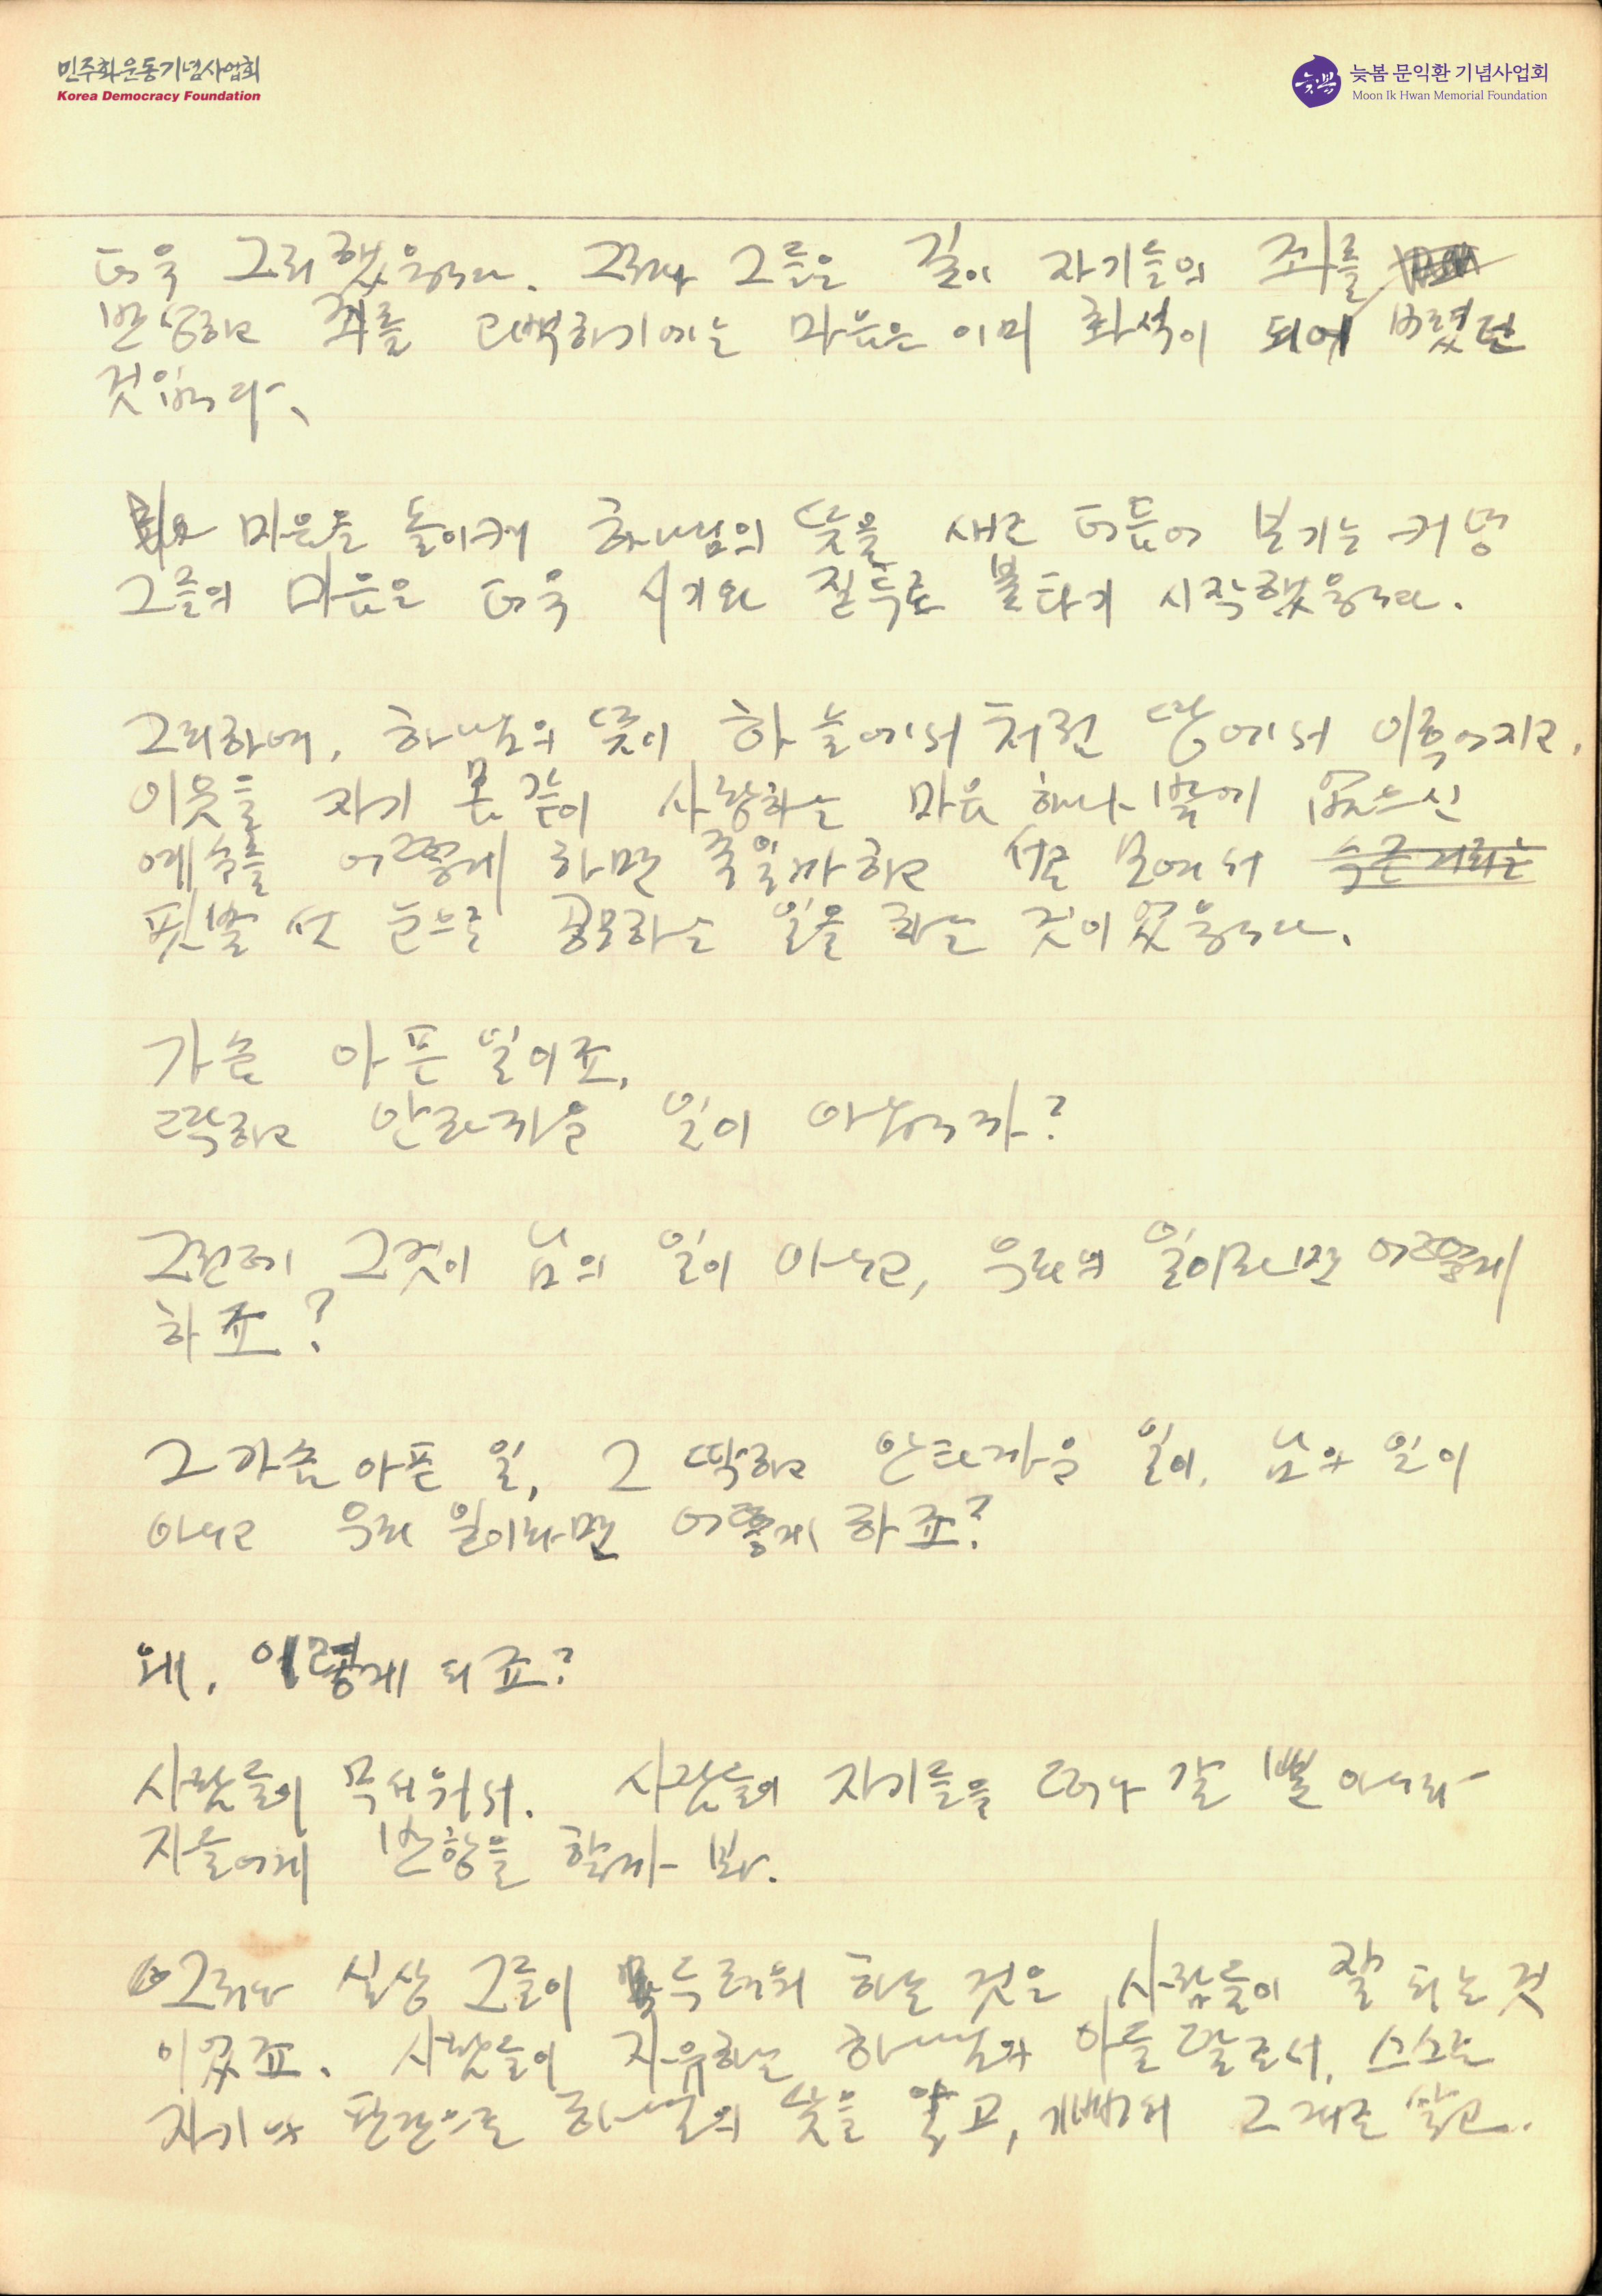 민주화운동기념사업회
Korea Democracy Foundation
늦봄 문익환 기념사업회
Moon Ik Hwan Memorial Foundation
더욱 그리했읍니다. 그러나 그들은 깊이 자기들의 죄를
반성하고 죄를 고백하기에는 마음은 이미 화석이 되어 버렸던
것입니다.
마음을 돌이켜 하나님의 뜻을 새로 더듬어 보기는 커녕
그들의 마음은 더욱 시기와 질투로 불타기 시작했읍니다.
그리하여, 하나님의 뜻이 하늘에서 처럼 땅에서 이루어지고,
이웃을 자기 몸 같이 사랑하는 마음 하나 밖에 없으신
예수를 어떻게 하면 죽일까 하고 서로 모여서
핏발 선 눈으로 공모하는 일을 하는 것이었읍니다.
가슴 아픈 일이죠.
딱하고 안타까운 일이 아닙니까?
그런데 그것이 남의 일이 아니고, 우리의 일이라면 어떻게
하죠?
그 가슴 아픈 일, 그 딱하고 안타까운 일이, 남의 일이
아니고 우리 일이라면 어떻게 하죠?
왜, 이렇게 되죠?
사람들이 무서워서. 사람들이 자기들을 떠나 갈 뿐 아니라
자기들에게 반항을 할까 봐.
그러나 실상 그들이 두려워 하는 것은 사람들이 잘 되는 것
이었죠. 사람들이 자유하는 하나님의 아들 딸로서, 스스로
자기의 판단으로 하나님의 뜻을 알고, 기쁘게 그대로 살고.